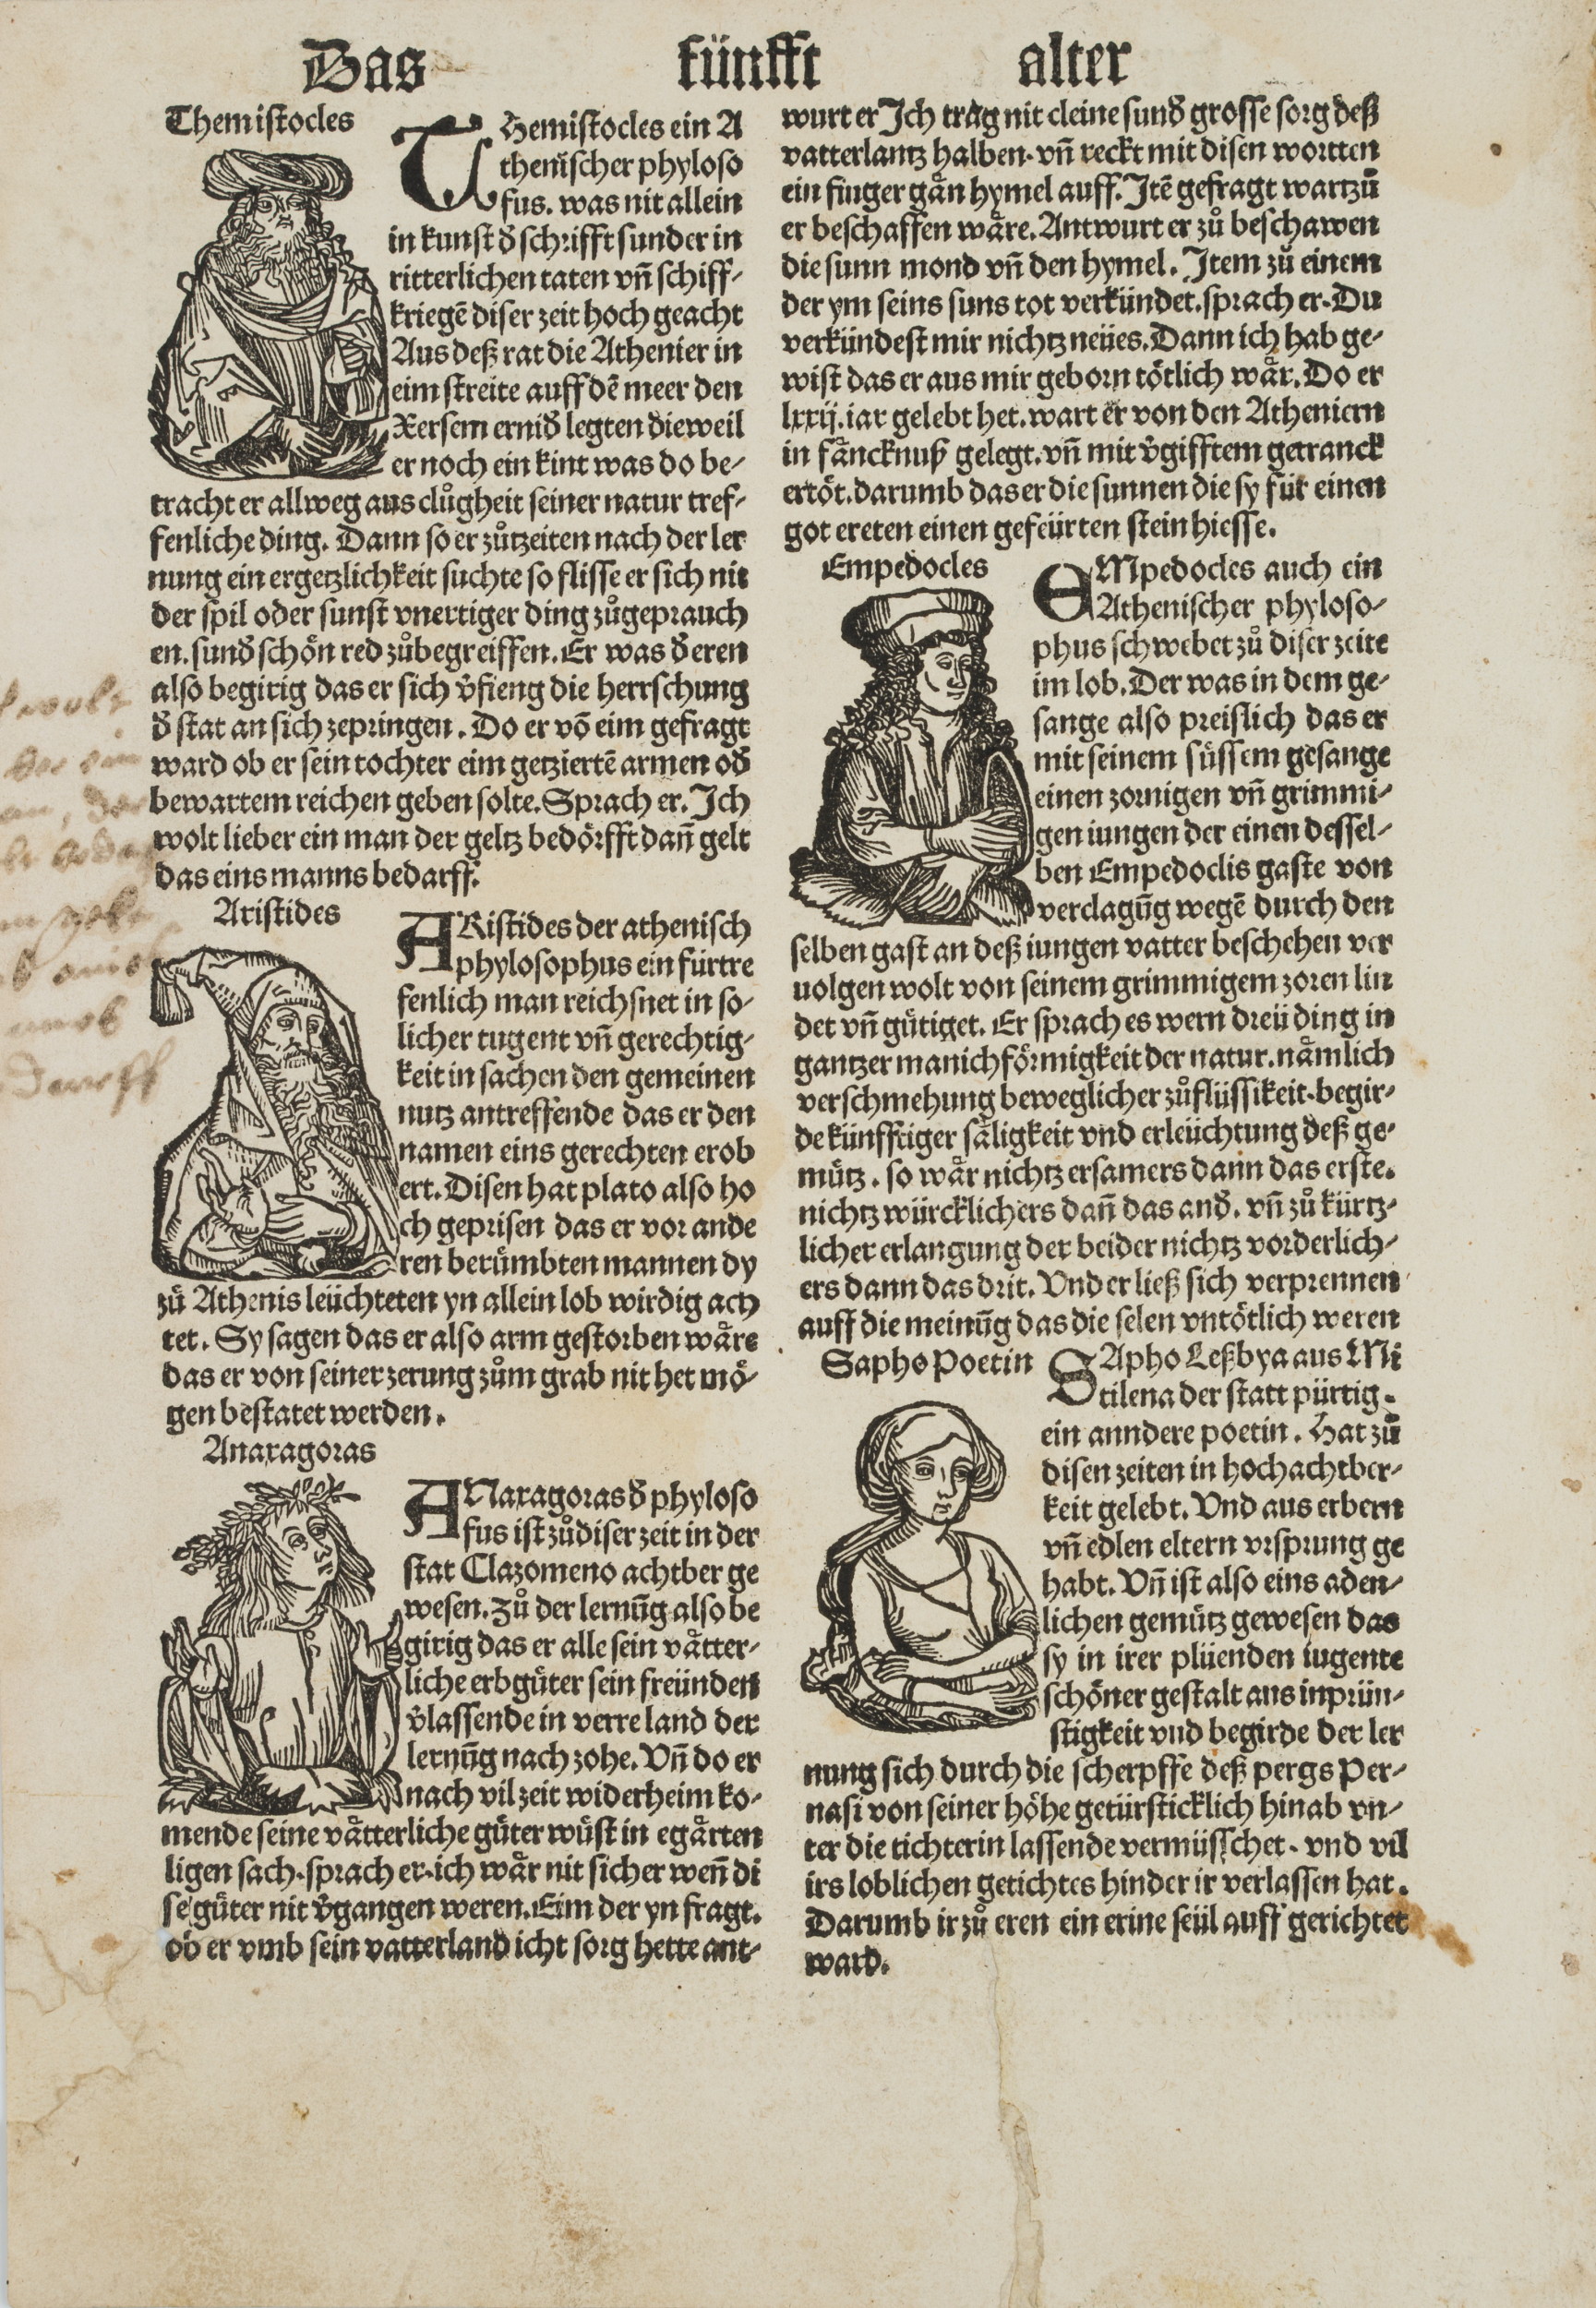 Das fünfft alter
Themistocles
THemistocles ein A
thenischer phyloso
fus. was nit allein
in kunst đ schrifft sunder in
ritterlichen taten vñ schiff-
kriegē diser zeit hoch geacht
Aus deß rat die Athenier in
eim streite auff dē meer den
Xersem erniđ legten dieweil
er noch ein kint was do be-
tracht er allweg aus clůgheit seiner natur tref-
fenliche ding. Dann so er zůtzeiten nach der ler
nung ein ergetzlichkeit suchte so flisse er sich nit
der spil oder sunst vnertiger ding zůgeprauch
en. sunđ schön red zůbegreiffen. Er was đ eren
also begirig das er sich v̄fieng die herrschung
đ stat an sich zepringen. Do er vō eim gefragt
ward ob er sein tochter eim getziertē armen ođ
bewartem reichen geben solte. Sprach er. Ich
wolt lieber ein man der geltz bedörfft dañ gelt
das eins manns bedarff.
Aristides
ARistides der athenisch
phylosophus ein fürtre
fenlich man reichsnet in so-
licher tugent vñ gerechtig-
keit in sachen den gemeinen
nutz antreffende das er den
namen eins gerechten erob
ert. Disen hat plato also ho
ch geprisen das er vor ande
ren berümbten mannen dy
zů Athenis leüchteten yn allein lob wirdig ach
tet. Sy sagen das er also arm gestorben wäre
das er von seiner zerung zům grab nit het mö-
gen bestatet werden.
Anaxagoras
ANaxagoras đ phyloso
fus ist zů diser zeit in der
stat Clazomeno achtber ge
wesen. Zů der lernūg also be
girig das er alle sein vätter-
liche erbgüter sein freünden
v̄lassende in verre land der
lernūg nach zohe. Vñ do er
nach vil zeit widerheim ko-
mende seine vätterliche güter wüst in egärten
ligen sach. sprach er. ich wär nit sicher weñ di
se güter nit v̄gangen weren. Eim der yn fragt.
ob er vmb sein vatterland icht sorg hette ant-
wurt er Ich trag nit cleine sunđ grosse sorg deß
vatterlantz halben. vñ reckt mit disen wortten
ein finger gän hymel auff. Itē gefragt wartzů
er beschaffen wäre. Antwurt er zů beschawen
die sunn mond vñ den hymel. Item zů einem
der ym seins suns tot verkündet. sprach er. Du
verkündest mir nichtz neües. Dann ich hab ge-
wist das er aus mir geborn tötlich wär. Do er
lxxij. iar gelebt het. wart er von den Atheniern
in fäncknuß gelegt. vñ mit v̄gifftem getranck
ertöt. darumb das er die sunnen die sy für einen
got ereten einen gefeürten stein hiesse.
Empedocles
EMpedocles auch ein
Athenischer phyloso-
phus schwebet zů diser zeite
im lob. Der was in dem ge-
sange also preislich das er
mit seinem süssem gesange
einen zornigen vñ grimmi-
gen iungen der einen dessel-
ben Empedoclis gaste von
verclagūg wegē durch den
selben gast an deß iungen vatter beschehen ver
uolgen wolt von seinem grimmigem zoren lin
det vñ gütiget. Er sprach es wern dreü ding in
gantzer manichförmigkeit der natur. nämlich
verschmehung beweglicher zůflüssikeit. begir-
de künfftiger säligkeit vnd erleüchtung deß ge-
mütz. so wär nichtz ersamers dann das erste.
nichtz würcklichers dañ das anđ. vñ zů kürtz-
licher erlangung der beider nichtz vorderlich-
ers dann das drit. Vnd er ließ sich verprennen
auff die meinūg das die selen vntötlich weren
Sapho Poetin
SApho Leßbya aus Mi
tilena der statt pürtig.
ein anndere poetin. Hat zů
disen zeiten in hochachtber-
keit gelebt. Vnd aus erbern
vñ edlen eltern vrsprung ge
habt. Vñ ist also eins aden-
lichen gemütz gewesen das
sy in irer plüenden iugente
schöner gestalt aus inprün-
stigkeit vnd begirde der ler
nung sich durch die scherpffe deß pergs Per-
nasi von seiner höhe getürsticklich hinab vn-
ter die tichterin lassende vermüsschet. vnd vil
irs loblichen getichtes hinder ir verlassen hat.
Darumb ir zů eren ein erine seül auff gerichtet
ward.